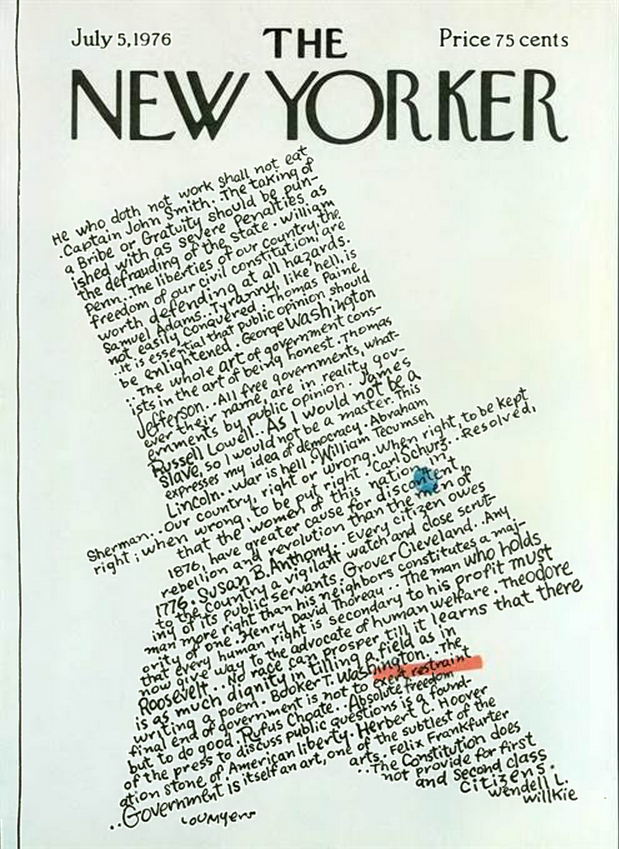 July 5, 1976
THE
Price 75 cents
NEW YORKER
He who doth not work shall not eat
. Captain John Smith.. The taking of
a Bribe or Gratuity should be pun-
ished with as severe Penalties as
the defrauding of the State. William
Penn.. The liberties of our country, the
freedom of our civil constitution, are
worth defending at all hazards.
Samuel Adams. Tyranny, like hell, is
not easily conquered. Thomas Paine
..it is essential that public opinion should
be enlightened. George Washington
..The whole art of government cons-
ists in the art of being honest. Thomas
Jefferson.. All free governments, what-
ever their name, are in reality gov-
ernments by public opinion. James
Russell Lowell. As I would not be a
slave, so I would not be a master. This
expresses my idea of democracy. Abraham
Lincoln.. War is hell. William Tecumseh
Sherman... Our country, right or wrong. When right, to be kept
right; when wrong, to be put right. Carl Schurz... Resolved,
that the women of this nation in
1876, have greater cause for discontent,
rebellion and revolution than the men of
1776. Susan B. Anthony. Every citizen owes
to the country a vigilant watch and close scrut-
iny of its public servants. Grover Cleveland.. Any
man more right than his neighbors constitutes a maj-
ority of one. Henry David Thoreau.. The man who holds
that every human right is secondary to his profit must
now give way to the advocate of human welfare. Theodore
Roosevelt.. No race can prosper till it learns that there
is as much dignity in tilling a field as in
writing a poem. Booker T. Washington... The
final end of government is not to exert restraint
but to do good. Rufus Choate. Absolute freedom
of the press to discuss public questions is a found-
ation stone of American liberty. Herbert C. Hoover
..Government is itself an art, one of the subtlest of the
arts. Felix Frankfurter
..The Constitution does
not provide for first
and second class
citizens.
Wendell L.
Willkie
LOU Myers